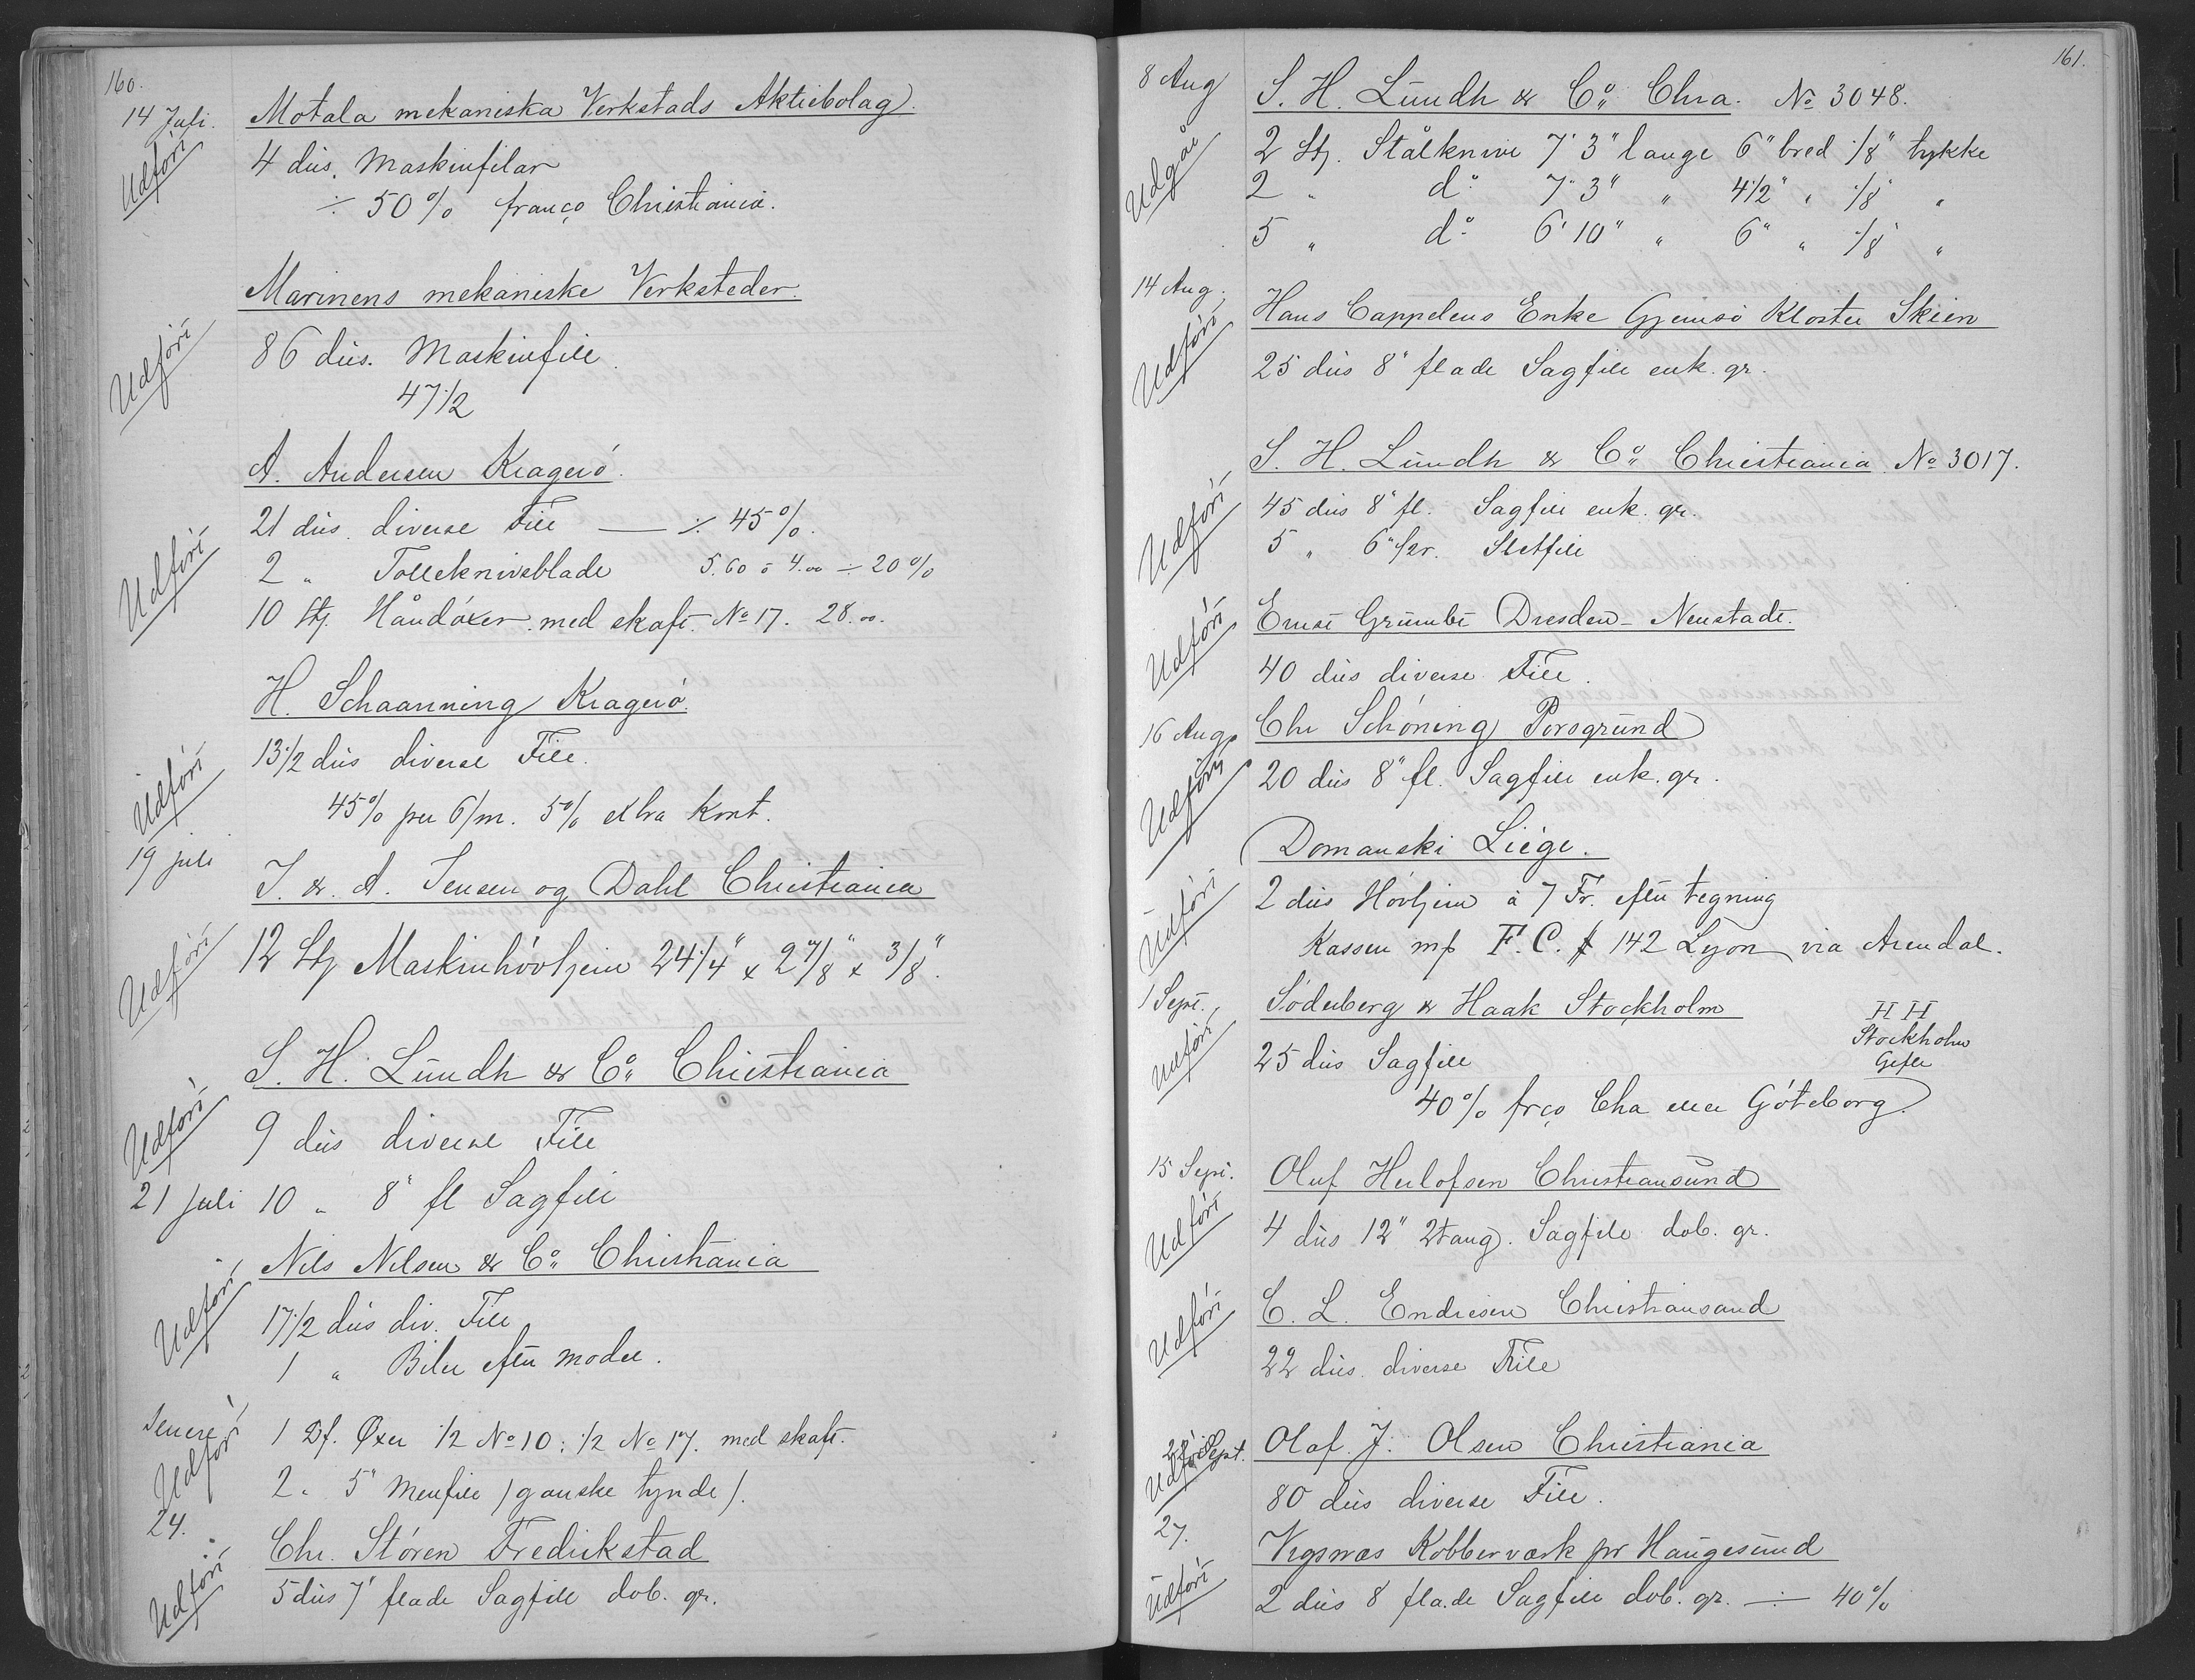 160.
14 Juli. Motala mekaniska Verkstads Aktiebolag.
Udført
4 dus. Maskinfilar
÷ 50% franco Christiania.
Marinens mekaniske Verksteder.
Udført
86 dus. Maskinfile
47 1/2
A. Andersen Kragerö.
21 dus. diverse File — ÷ 45%.
Udført
2 " Tolleknivsblade 5.60 o 4.00 ÷ 20%
10 Stj. Håndøxer med skaft. No 17. 28.00.
H. Schaanning Kragerö.
13 1/2 dus diverse File.
Udført
45% per 6/m. 5% extra Kont.
19 juli
J. & A. Jensen og Dahl Christiania
Udført
12 Stj Maskinhövljern 24 1/4" x 2 7/8" x 3/8".
S. H. Lundh & Co Christiania
Udført
9 dus diverse File
21 Juli 10 " 8" fl Sagfile
Nils Nilsen & Co Christiania
Udført
17 1/2 dus div. File
1 " Biler efter model.
Senere 1 Df. Øxer 1/2 No 10; 1/2 No 17. med skaft.
Udført
2 " 5" Menfile (ganske tynde).
24.
Chr. Stören Fredrikstad
Udført
5 dus 7" flade Sagfile dob. gr.
161.
8 Aug S. H. Lundh & Co Chra. No 3048.
Udgår
2 Stj. Stålknive 7' 3" lange 6" bred 1/8" tykke
2 " do 7' 3" " 4 1/2" " 1/8" "
5 " do 6' 10" " 6" " 1/8" "
14 Aug. Hans Cappelens Enke Gjemsö Kloster Skien
Udført
25 dus 8" flade Sagfile enk. gr.
S. H. Lundh & Co Christiania No 3017.
Udført
45 dus 8" fl. Sagfile enk. gr.
5 " 6" Sletfile
Ernst Grumbt Dresden-Neustadt.
Udført
40 dus diverse File.
16 Aug Chr Schöning Porsgrund
Udført
20 dus 8" fl. Sagfile enk. gr.
Domanski Liége.
Udført
2 dus Hövljern à 7 Fr. efter tegning
Kassen F. C. 142 Lyon via Arendal.
1 Sept. Söderberg & Haak Stockholm
Udført
H H
Stockholm
Gefle
25 dus Sagfile
40% frco Cha eller Göteborg.
15 Sept. Oluf Herlofsen Christiansund
Udført
4 dus 12" 2tang. Sagfile dob. gr.
C. L. Endresen Christiansand
Udført
22 dus. diverse File
22 Sept. Olaf. J. Olsen Christiania
Udført
80 dus diverse File.
27.
Vigsnæs Kobberværk pr Haugesund
Udført
2 dus 8 flade Sagfile dob. gr. ÷ 40%